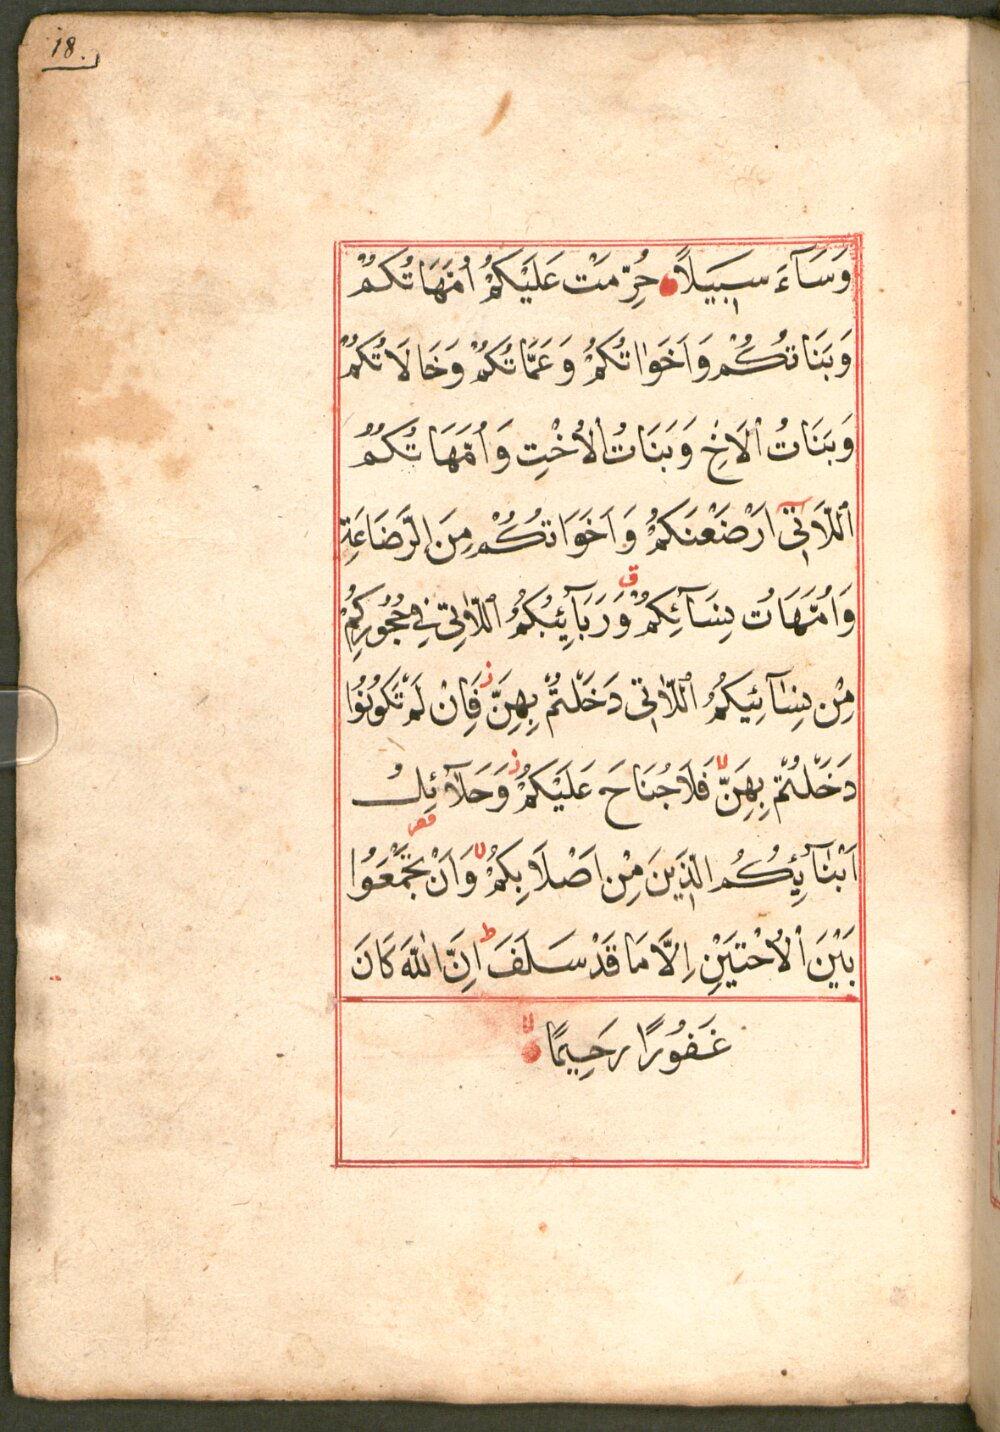 18.
وَسَآءَ سَبِيلاً حُرِّمَتْ عَلَيْكُمْ اُمَّهَاتُكُمْ
وَبَنَاتُكُمْ وَاَخَوَاتُكُمْ وَعَمَّاتُكُمْ وَخَالَاتُكُمْ
وَبَنَاتُ الْاَخِ وَبَنَاتُ الْاُخْتِ وَاُمَّهَاتُكُمُ
اللَّاتِٓي اَرْضَعْنَكُمْ وَاَخَوَاتُكُمْ مِنَ الرَّضَاعَةِ
وَاُمَّهَاتُ نِسَآئِكُمْ ق وَرَبَآئِيبُكُمُ اللَّاتِي فِي حُجُورِكُمْ
مِنْ نِسَآئِيكُمُ اللَّاتِي دَخَلْتُمْ بِهِنَّ ز فَاِنْ لَمْ تَكُونُوا
دَخَلْتُمْ بِهِنَّ لا فَلَا جُنَاحَ عَلَيْكُمْ ز وَحَلَآئِلُ
اَبْنَآئِكُمُ الَّذِينَ مِنْ اَصْلَابِكُمْ لا وَاَنْ تَجْمَعُوا
بَيْنَ الْاُخْتَيْنِ اِلَّا مَا قَدْ سَلَفَ ط اِنَّ اللّٰهَ كَانَ
غَفُورًا رَحِيمًا لا